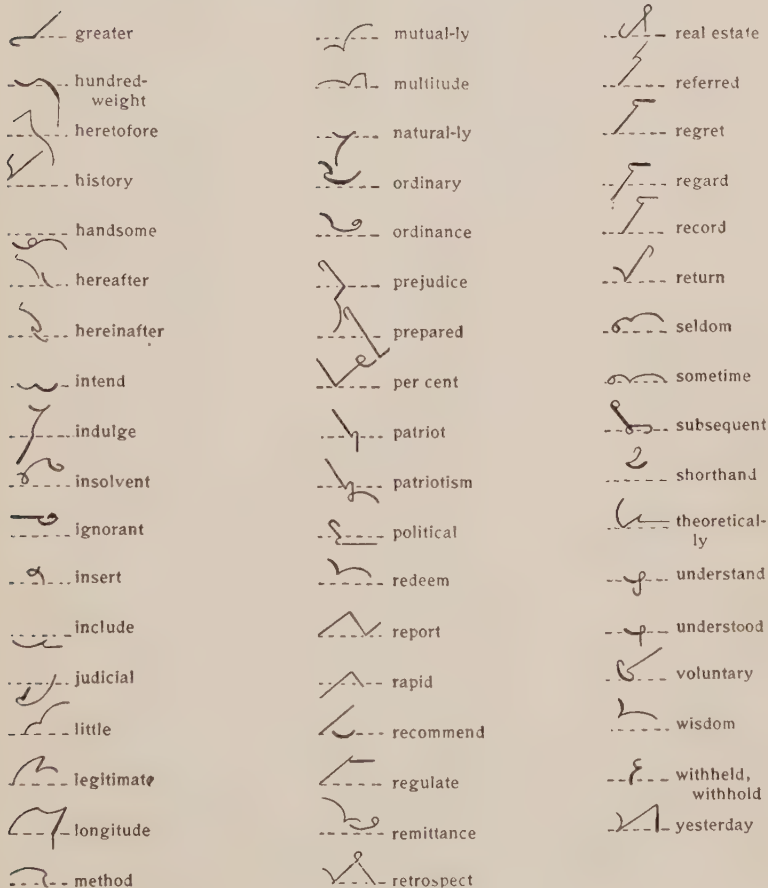 greater
hundred-
weight
heretofore
history
handsome
hereafter
hereinafter
intend
indulge
insolvent
ignorant
insert
include
judicial
little
legitimate
longitude
method
mutual-ly
multitude
natural-ly
ordinary
ordinance
prejudice
prepared
per cent
patriot
patriotism
political
redeem
report
rapid
recommend
regulate
remittance
retrospect
real estate
referred
regret
regard
record
return
seldom
sometime
subsequent
shorthand
theoretical-
ly
understand
understood
voluntary
wisdom
withheld,
withhold
yesterday